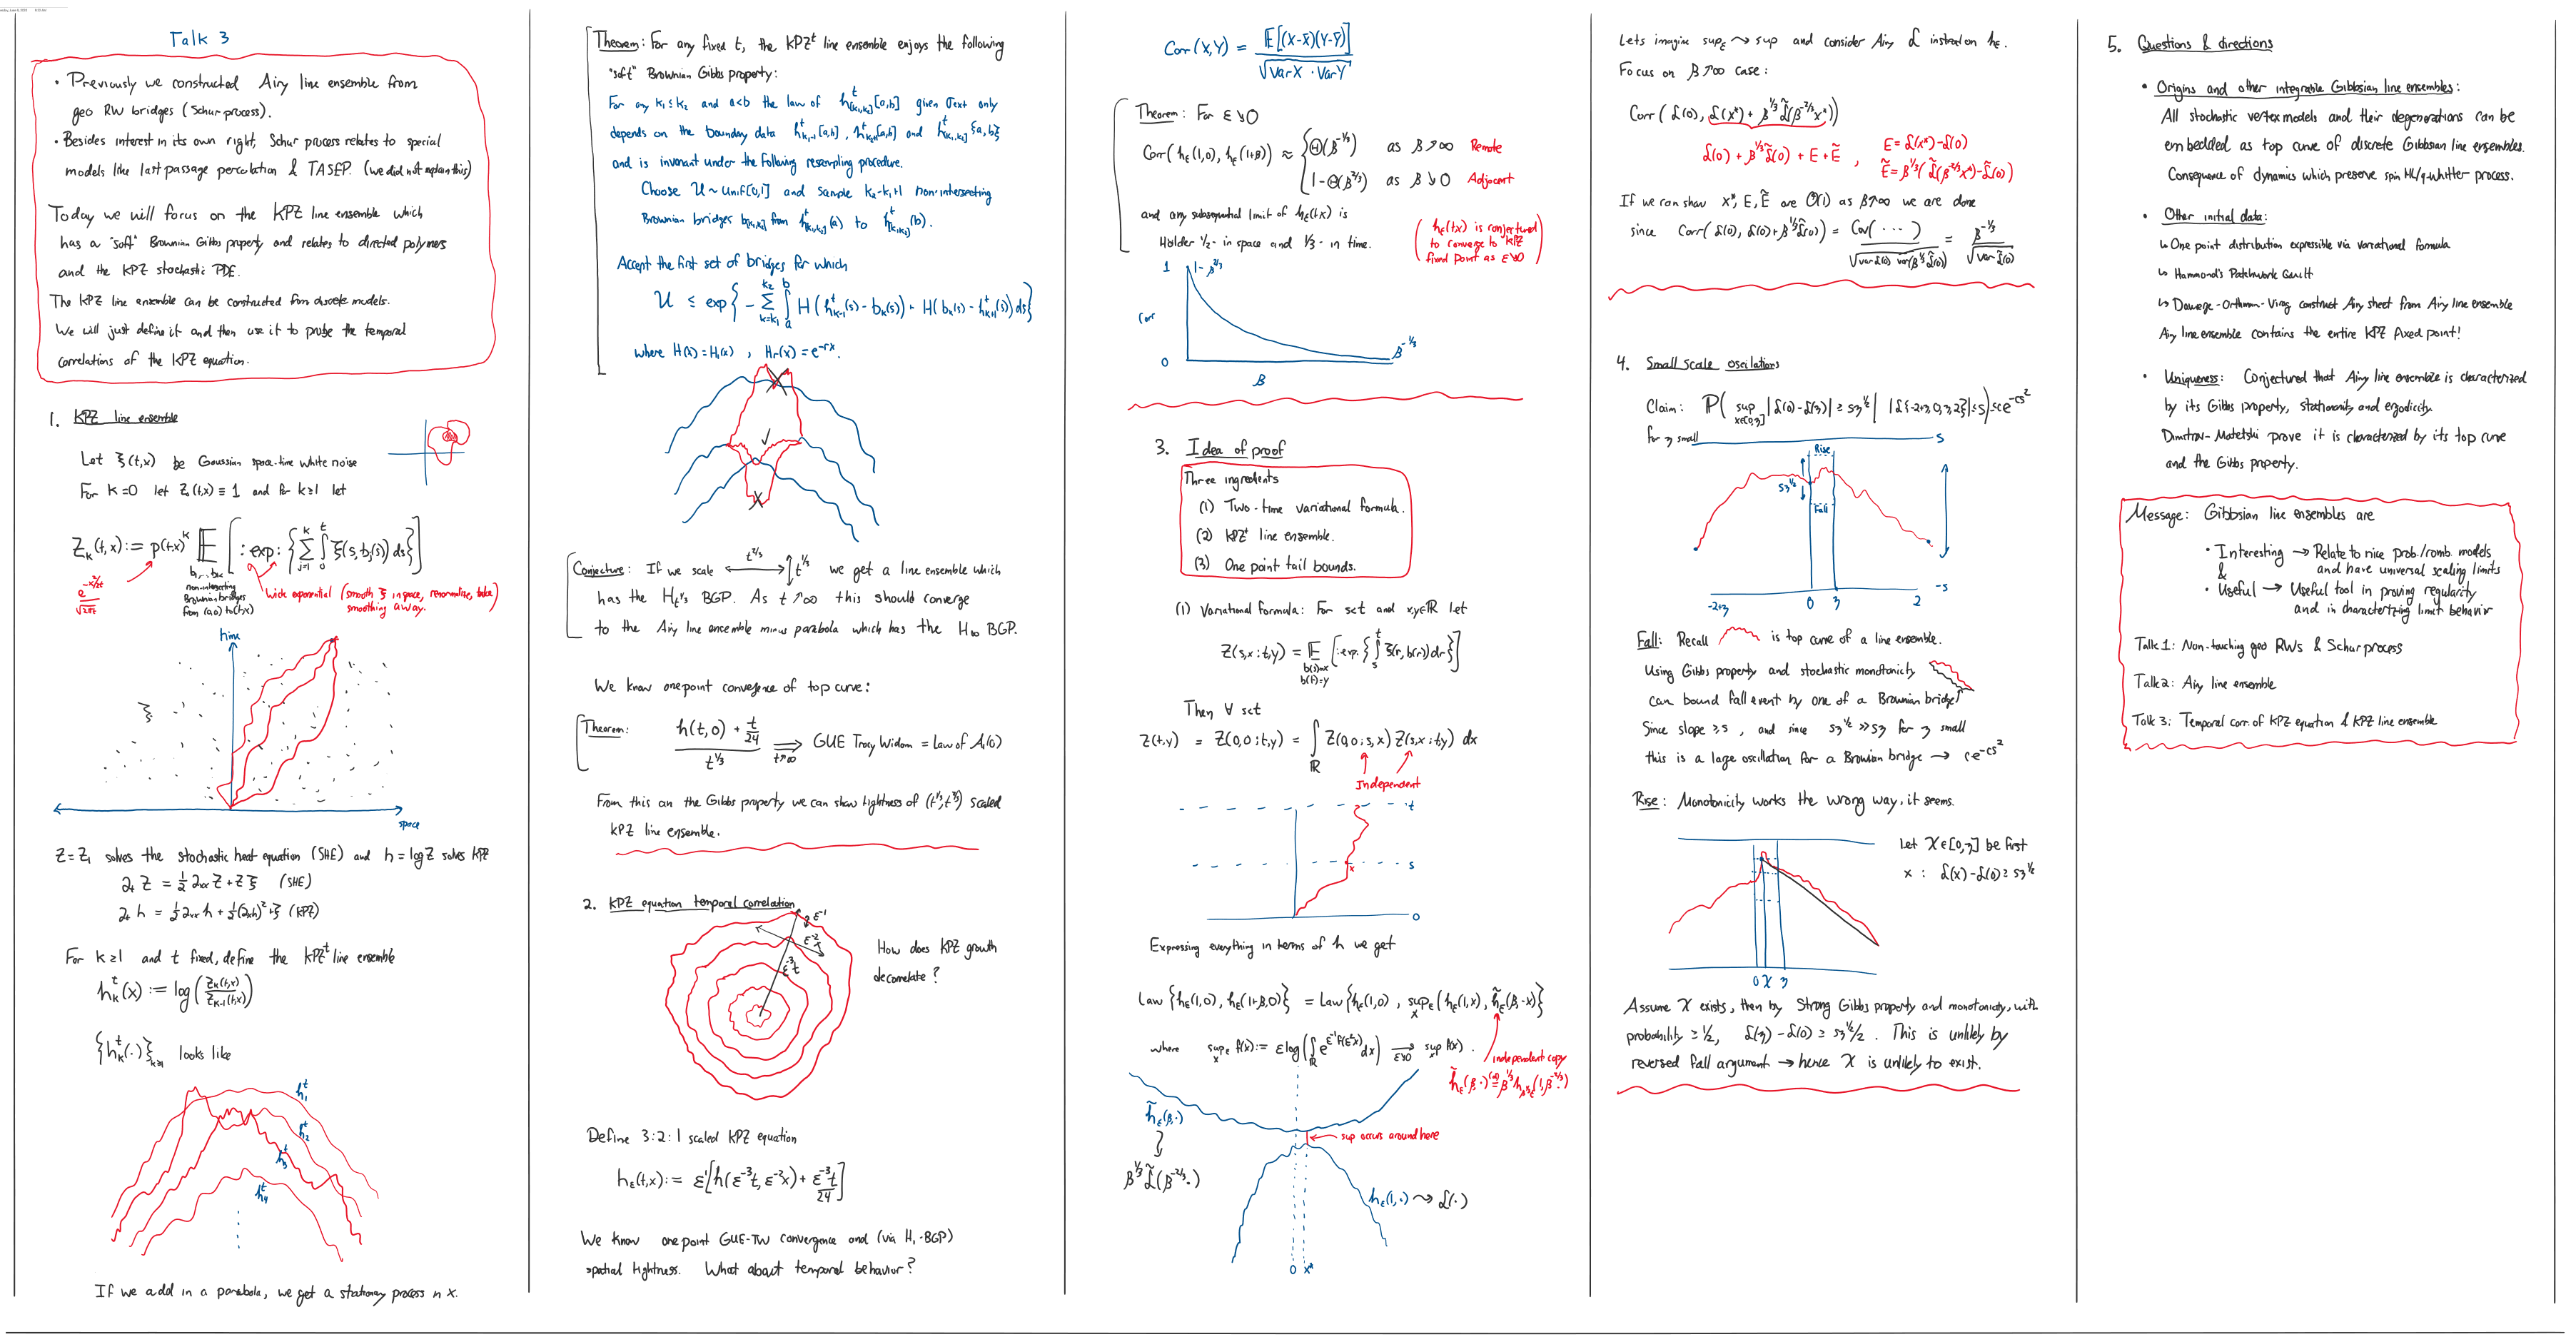 Talk 3
• Previously we constructed Airy line ensemble from
geo RW bridges (Schur process).
• Besides interest in its own right, Schur process relates to special
models like last passage percolation & TASEP. (we did not explain this)
Today we will focus on the KPZ line ensemble which
has a "soft" Brownian Gibbs property and relates to directed polymers
and the KPZ stochastic PDE.
The KPZ line ensemble can be constructed from discrete models.
We will just define it and then use it to probe the temporal
correlations of the KPZ equation.
1. KPZ line ensemble
Let ξ(t,x) be Gaussian space-time white noise
For k=0 let Z₀(t,x) ≡ 1 and for k≥1 let
Z_k(t,x) := p(t,x)^k 𝔼 [ :exp: { Σ_{j=1}^k ∫_0^t ξ(s,b_j(s)) ds } ]
e^{-x²/2t} / √2πt
b₁,...,b_k
non-intersecting
Brownian bridges
from (0,0) to (t,x)
Wick exponential (smooth ξ in space, renormalize, take
smoothing away.
time
ξ
space
Z=Z₁ solves the stochastic heat equation (SHE) and h=log Z solves KPZ
∂_t Z = ½ ∂_xx Z + Z ξ (SHE)
∂_t h = ½ ∂_xx h + ½(∂_x h)² + ξ (KPZ)
For k≥1 and t fixed, define the KPZ^t line ensemble
h_k^t(x) := log( Z_k(t,x) / Z_{k-1}(t,x) )
{h_k^t(·)}_{k≥1} looks like
h_1^t
h_2^t
h_3^t
h_4^t
If we add in a parabola, we get a stationary process in x.
Theorem: For any fixed t, the KPZ^t line ensemble enjoys the following
"soft" Brownian Gibbs property:
For any k₁≤k₂ and a<b the law of h^t_{[k₁,k₂]}[a,b] given σ_ext only
depends on the boundary data h^t_{k₁-1}[a,b], h^t_{k₂+1}[a,b] and h^t_{[k₁,k₂]}{a,b}
and is invariant under the following resampling procedure.
Choose U ~ Unif[0,1] and sample k₂-k₁+1 non-intersecting
Brownian bridges b_{[k₁,k₂]} from h^t_{[k₁,k₂]}(a) to h^t_{[k₁,k₂]}(b).
Accept the first set of bridges for which
U ≤ exp{ - Σ_{k=k₁}^{k₂} ∫_a^b H(h^t_{k-1}(s) - b_k(s)) + H(b_k(s) - h^t_{k+1}(s)) ds }
where H(x)=H₁(x), H_r(x)=e^{-rx}.
Conjecture: If we scale t^{2/3} t^{1/3} we get a line ensemble which
has the H_{t^{1/3}} BGP. As t↗∞ this should converge
to the Airy line ensemble minus parabola which has the H_∞ BGP.
We know onepoint convergence of top curve:
Theorem: (h(t,0) + t/24) / t^{1/3} ⟹_{t↗∞} GUE Tracy Widom = Law of A₁(0)
From this an the Gibbs property we can show tightness of (t^{1/3},t^{2/3}) scaled
KPZ line ensemble.
2. KPZ equation temporal correlation
ε^{-1}
ε^{-2}
ε^{-3}t
How does KPZ growth
decorrelate?
Define 3:2:1 scaled KPZ equation
h_ε(t,x) := ε[h(ε^{-3}t, ε^{-2}x) + ε^{-3}t/24]
We know one point GUE-TW convergence and (via H₁-BGP)
spatial tightness. What about temporal behavior?
Corr(X,Y) = 𝔼[(X-X̄)(Y-Ȳ)] / √(Var X · Var Y)
Theorem: For ε↘0
Corr(h_ε(1,0), h_ε(1+β)) ≈ { Θ(β^{-1/3}) as β↗∞ Remote
1-Θ(β^{2/3}) as β↘0 Adjacent
and any subsequential limit of h_ε(t,x) is
Holder ½- in space and ⅓- in time.
( h_ε(t,x) is conjectured
to converge to KPZ
fixed point as ε↘0 )
1
1-β^{2/3}
Corr
0
β^{-1/3}
β
3. Idea of proof
Three ingredients
(1) Two-time variational formula.
(2) KPZ^t line ensemble.
(3) One point tail bounds.
(1) Variational formula: For s<t and x,y∈ℝ let
Z(s,x;t,y) = 𝔼 [ :exp: { ∫_s^t ξ(r,b(r)) dr } ]
b(s)=x
b(t)=y
Then ∀ s<t
Z(t,y) = Z(0,0;t,y) = ∫_ℝ Z(0,0;s,x) Z(s,x;t,y) dx
Independent
t
s
x
0
Expressing everything in terms of h we get
Law {h_ε(1,0), h_ε(1+β,0)} = Law {h_ε(1,0), sup_ε_x (h_ε(1,x), h̃_ε(β,-x)}
where sup_ε_x f(x) := ε log(∫_ℝ e^{ε^{-1}f(ε²x)} dx) ⟶_{ε↘0} sup f(x).
independent copy
h̃_ε(β,·) (d)= β^{1/3} h_{β^{1/3}ε}(1, β^{-2/3}·)
h̃_ε(β,·)
β^{1/3} L̃(β^{-2/3}·)
sup occurs around here
h_ε(1,·) ⇝ L(·)
0 x*
Lets imagine sup_ε ⇝ sup and consider Airy L instead on h_ε.
Focus on β↗∞ case:
Corr( L(0), L(x*) + β^{1/3} L̃(β^{-2/3}x*) )
L(0) + β^{1/3} L̃(0) + E + Ẽ ,
E = L(x*)-L(0)
Ẽ = β^{1/3}( L̃(β^{-2/3}x*) - L̃(0) )
If we can show x*, E, Ẽ are O(1) as β↗∞ we are done
since Corr(L(0), L(0)+β^{1/3}L̃(0)) = Cov(···) / √(var L(0) var(β^{1/3}L̃(0))) = β^{-1/3} / √(var L̃(0))
4. Small scale oscilations
Claim: ℙ( sup_{x∈[0,η]} |L(0)-L(η)| ≥ sη^{1/2} | |L{-2+η,0,η,2}|≤s) ≤ ce^{-cs²}
for η small
s
Rise
sη^{1/2}
Fall
-s
-2+η 0 η 2
Fall: Recall is top curve of a line ensemble.
Using Gibbs property and stochastic monotonicity
can bound fall event by one of a Brownian bridge
Since slope ≥ s, and since sη^{1/2} >> sη for η small
this is a large oscillation for a Brownian bridge → ce^{-cs²}
Rise: Monotonicity works the wrong way, it seems.
Let χ∈[0,η] be first
x : L(x)-L(0) ≥ sη^{1/2}
0 χ η
Assume χ exists, then by Strong Gibbs property and monotonicity, with
probability ≥ 1/2, L(η)-L(0) ≥ sη^{1/2}/2. This is unlikely by
reversed fall argument → hence χ is unlikely to exist.
5. Questions & directions
• Origins and other integrable Gibbsian line ensembles:
All stochastic vertex models and their degenerations can be
embedded as top curve of discrete Gibbsian line ensembles.
Consequence of dynamics which preserve spin HL/q-Whitter process.
• Other initial data:
↳ One point distribution expressible via variational formula
↳ Hammond's Patchwork Quilt
↳ Dauverge-Orthman-Virag construct Airy sheet from Airy line ensemble
Airy line ensemble contains the entire KPZ fixed point!
• Uniqueness: Conjectured that Airy line ensemble is characterized
by its Gibbs property, stationarity and ergodicity.
Dimitrov-Matetski prove it is characterized by its top curve
and the Gibbs property.
Message: Gibbsian line ensembles are
• Interesting → Relate to nice prob./comb. models
and have universal scaling limits
&
• Useful → Useful tool in proving regularity
and in charactertizing limit behavior
Talk 1: Non-touching geo RWs & Schur process
Talk 2: Airy line ensemble
Talk 3: Temporal corr. of KPZ equation & KPZ line ensemble